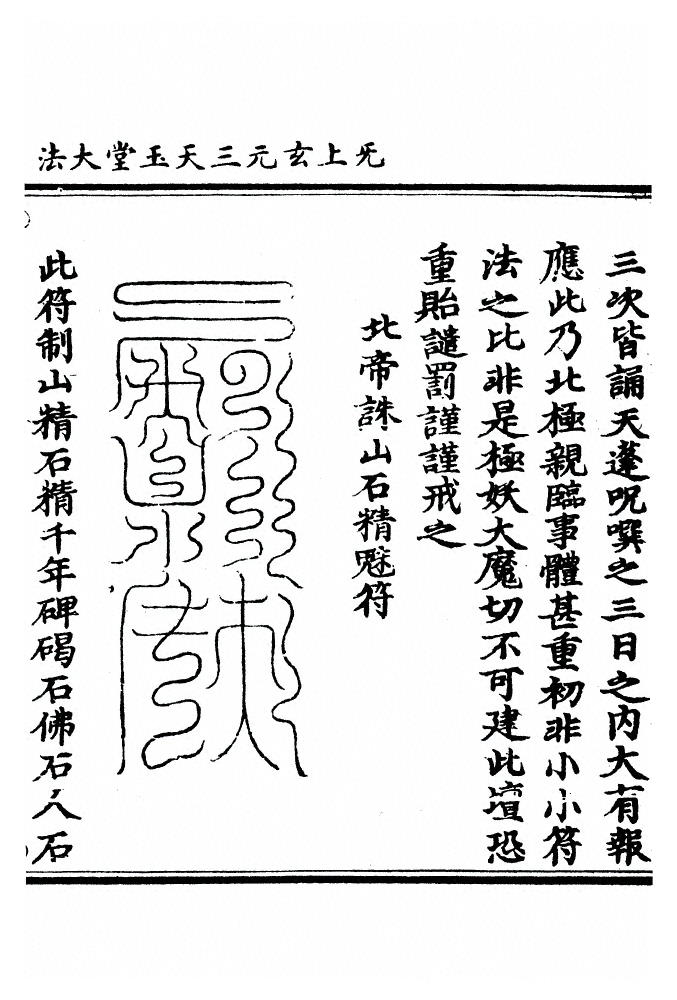 无上玄元三天玉堂大法
三次皆誦天蓬呪噀之三日之内大有報
應此乃北極親臨事體甚重初非小小符
法之比非是極妖大魔切不可建此壇恐
重貽譴罰謹謹戒之
北帝誅山石精魅符
此符制山精石精千年碑碣石佛石人石